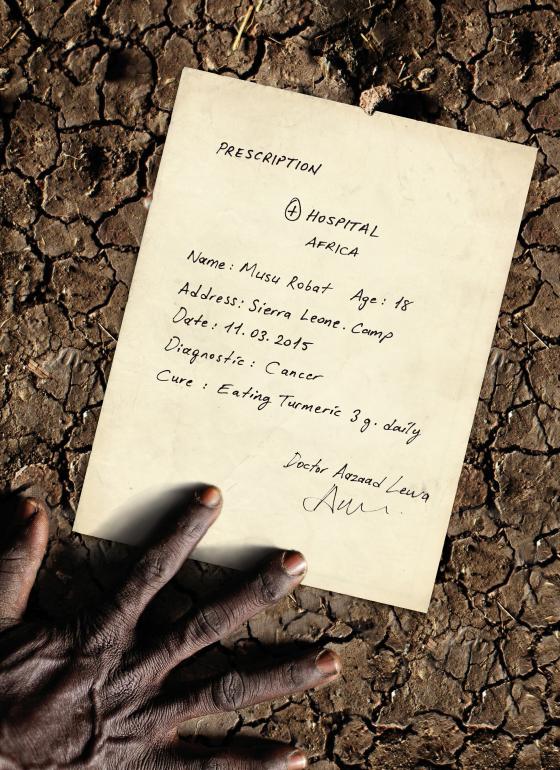 PRESCRIPTION
HOSPITAL
AFRICA
Name: Musu Robat Age: 18
Address: Sierra Leone. Camp
Date: 11.03.2015
Diagnostic: Cancer
Cure: Eating Turmeric 3 g. daily
Doctor Aazaad Lewa